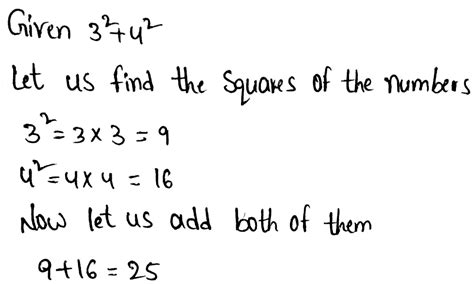 Given 3²+4²
Let us find the squares of the numbers
3²=3×3=9
4²=4×4=16
Now let us add both of them
9+16=25